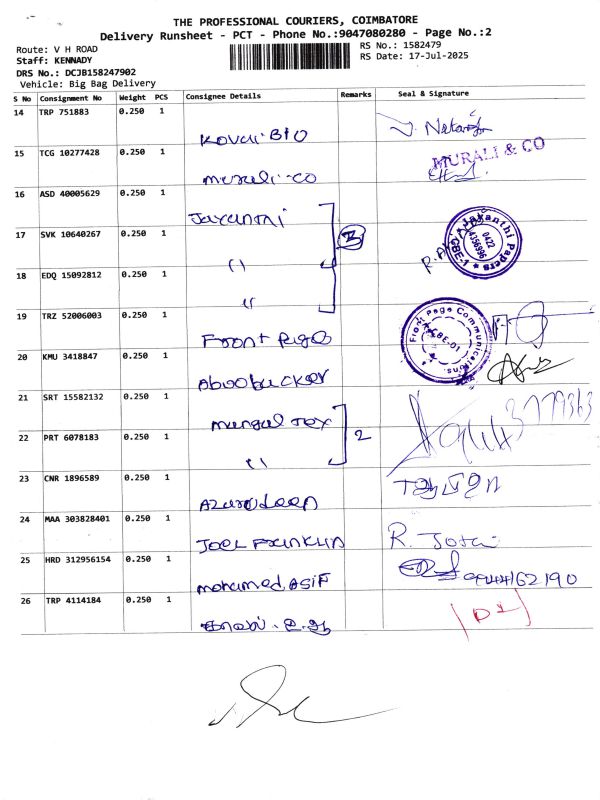 THE PROFESSIONAL COURIERS, COIMBATORE
Delivery Runsheet - PCT - Phone No.:9047080280 - Page No.:2
Route: V H ROAD
RS No.: 1582479
Staff: KENNADY
RS Date: 17-Jul-2025
DRS No.: DCJB158247902
Vehicle: Big Bag Delivery
S No Consignment No Weight PCS Consignee Details Remarks Seal & Signature
14 TRP 751883 0.250 1
Kovai BIO
15 TCG 10277428 0.250 1
murali-co MURALI & CO
16 ASD 40005629 0.250 1
Jayanthi
17 SVK 10640267 0.250 1
" 3 Jayanthi Papers 0422 4356996 CBE-1
18 EDQ 15092812 0.250 1
"
19 TRZ 52006003 0.250 1
Front page Front Page Communications. CBE-01
20 KMU 3418847 0.250 1
Aboobucker
21 SRT 15582132 0.250 1
mangal Tex
22 PRT 6078183 0.250 1
" 2
23 CNR 1896589 0.250 1
Azarudeen
24 MAA 303828401 0.250 1
JOEL FRANKLIN
25 HRD 312956154 0.250 1
mohamed ASIF 9944162190
26 TRP 4114184 0.250 1